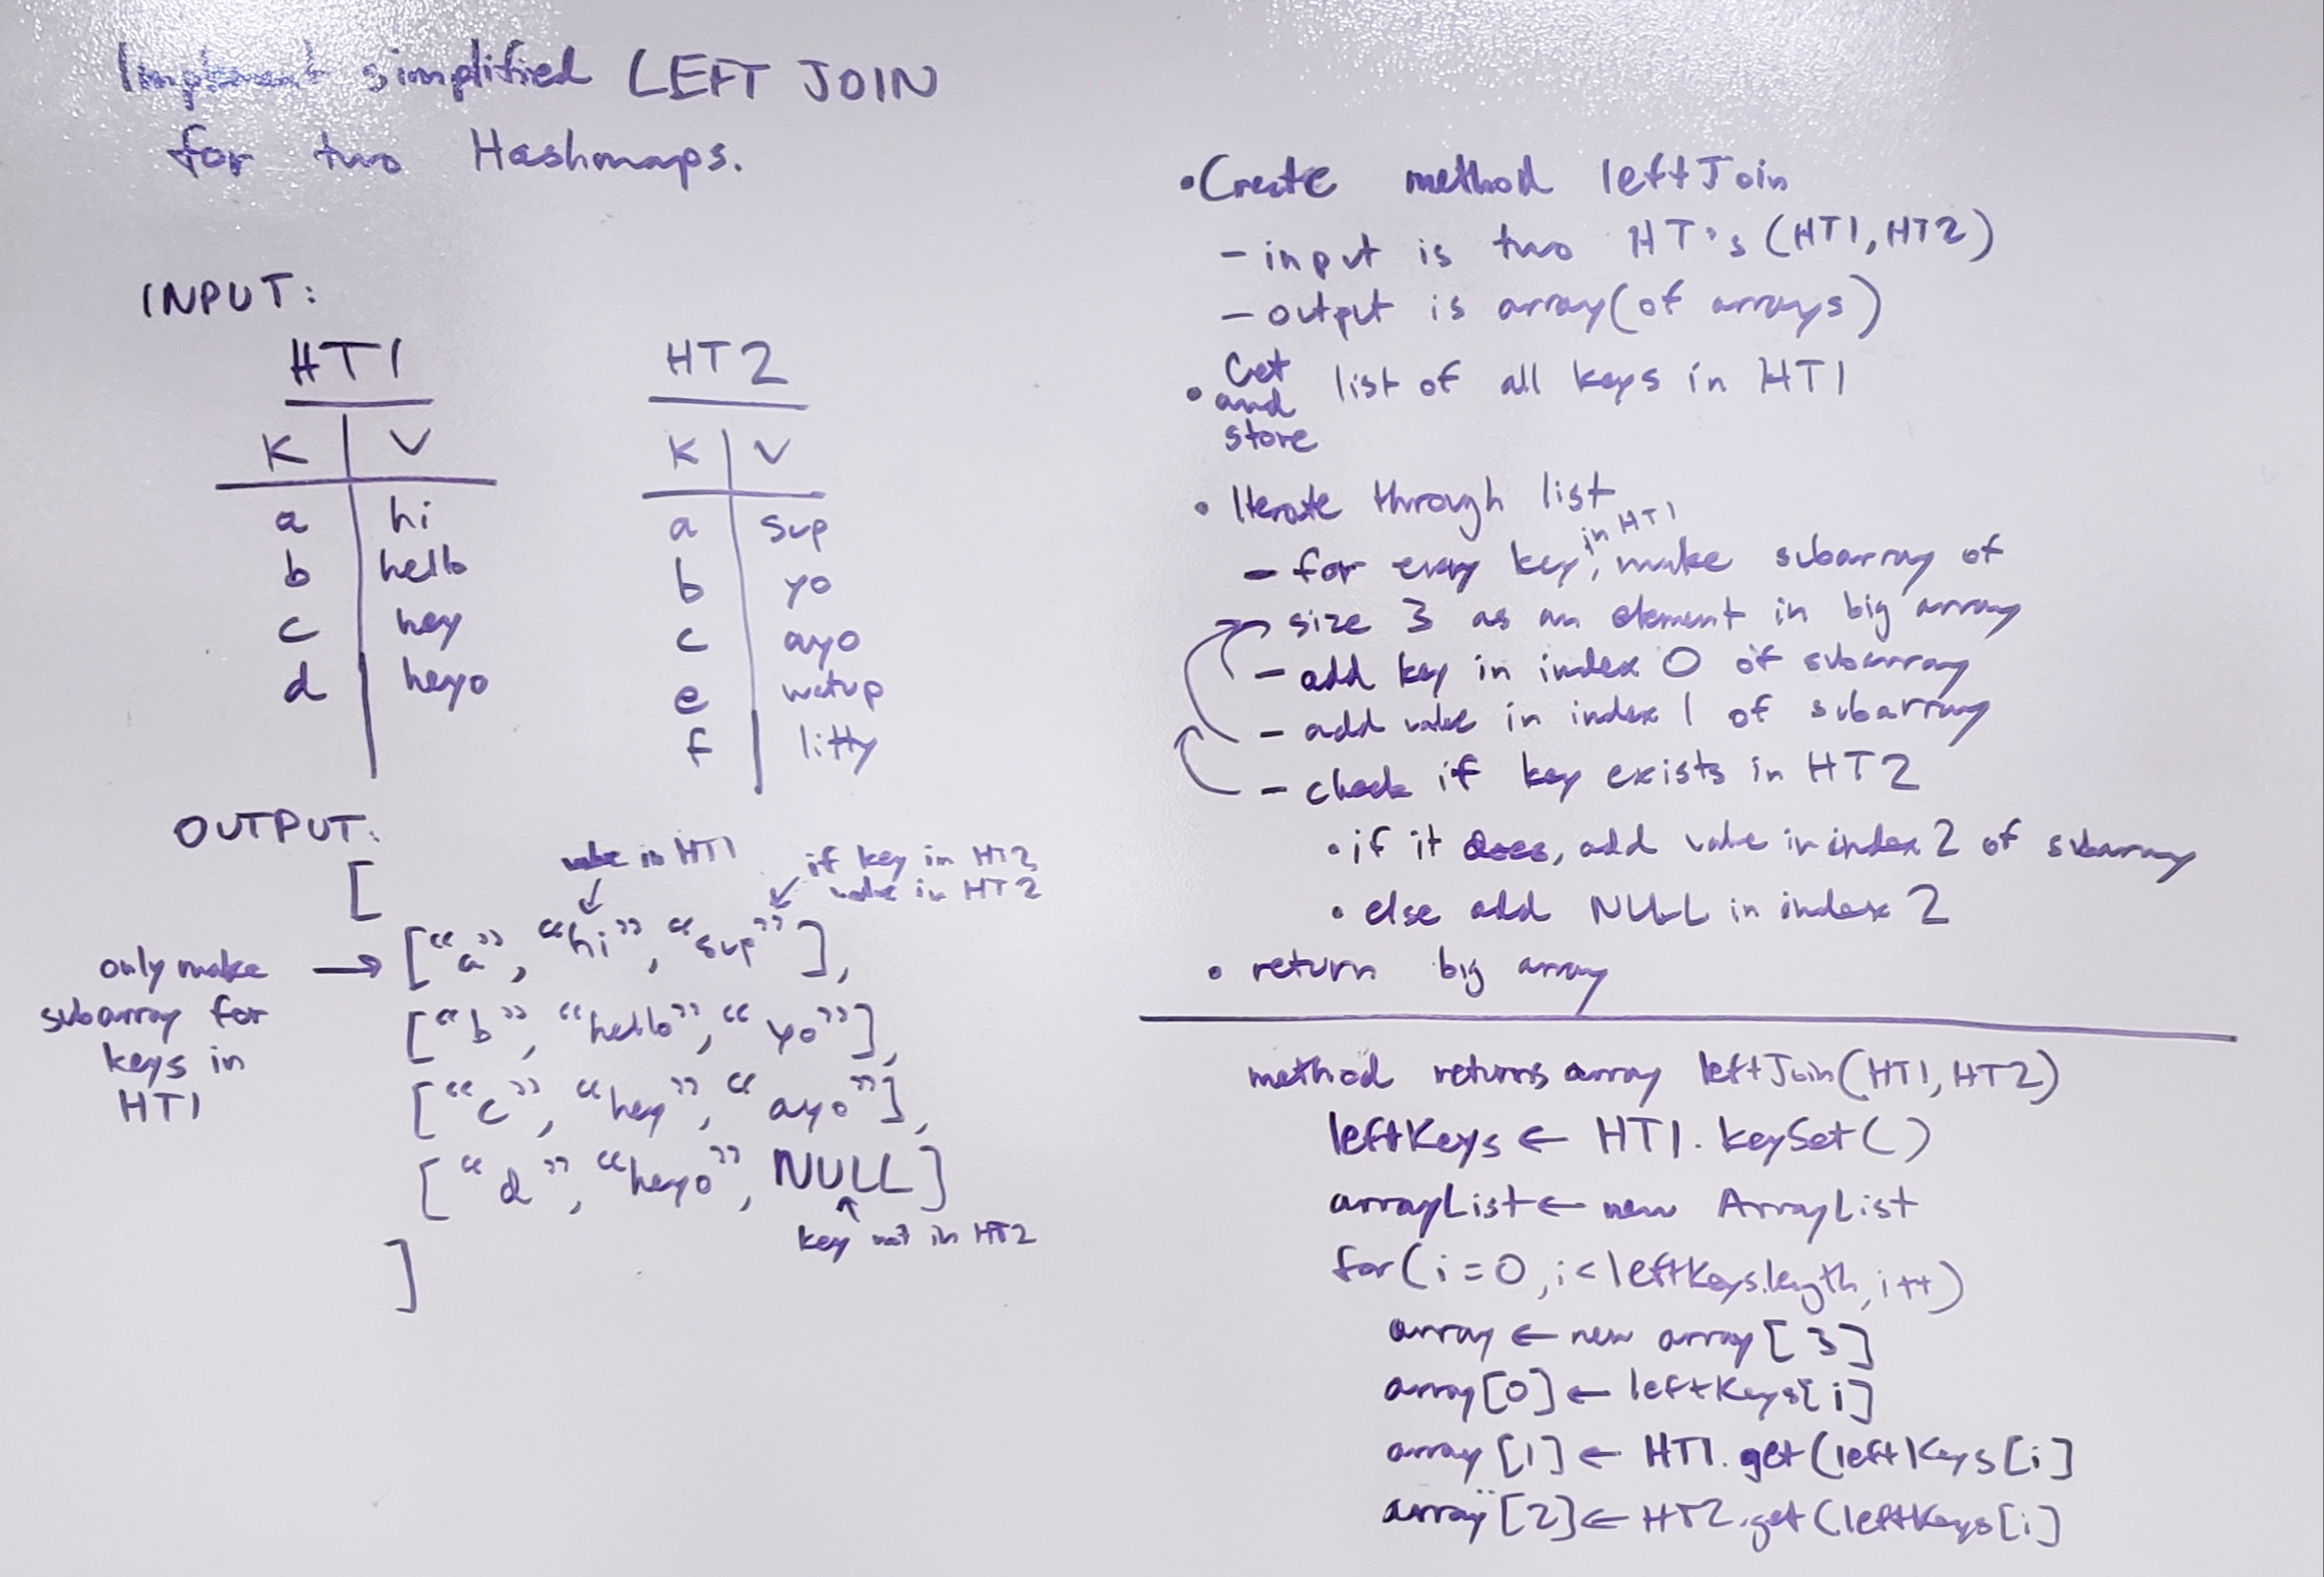 Implement simplified LEFT JOIN
for two Hashmaps.
INPUT:
HT1
K V
a hi
b hello
c hey
d heyo
HT2
K V
a sup
b yo
c ayo
e watup
f litty
OUTPUT:
[
value in HT1
if key in HT2
value in HT2
only make
subarray for
keys in
HT1
["a", "hi", "sup"],
["b", "hello", "yo"],
["c", "hey", "ayo"],
["d", "heyo", NULL]
key not in HT2
]
• Create method leftJoin
- input is two HT's (HT1, HT2)
- output is array (of arrays)
• Get and store list of all keys in HT1
• Iterate through list
- for every key in HT1, make subarray of
size 3 as an element in big array
- add key in index 0 of subarray
- add value in index 1 of subarray
- check if key exists in HT2
• if it does, add value in index 2 of subarray
• else add NULL in index 2
• return big array
method returns array leftJoin(HT1, HT2)
leftKeys ← HT1.keySet()
arrayList ← new ArrayList
for(i=0, i<leftKeys.length, i++)
array ← new array[3]
array[0] ← leftKeys[i]
array[1] ← HT1.get(leftKeys[i]
array[2] ← HT2.get(leftKeys[i]